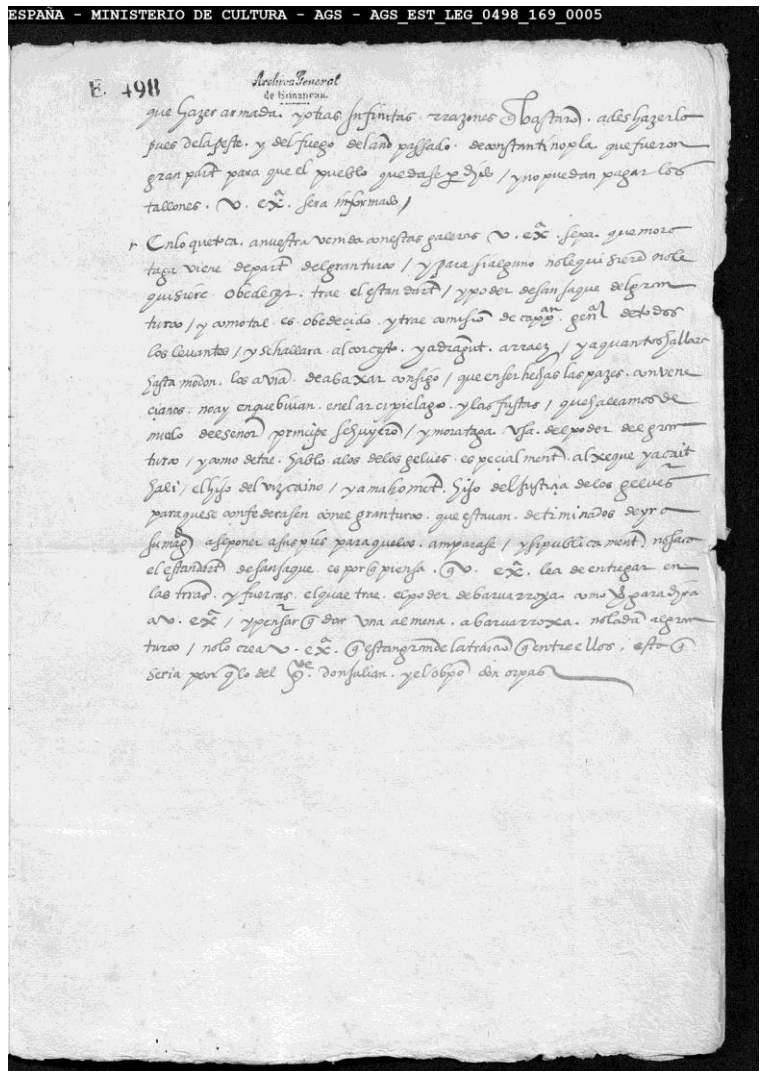 ESPAÑA - MINISTERIO DE CULTURA - AGS - AGS_EST_LEG_0498_169_0005
E. 498
Archivo General
de Simancas
que hazer armada. y otras Infinitas rrazones q bastarõ. a deshazerlo
pues de la peste. y del fuego del año passado. de constantinopla que fueron
gran part para que el pueblo quedase perdido / y no puedan pagar los
tallones. V. exª. sera informado /
En lo que toca. a nuestra venida con estas galeras V. exª. sepa. que mora
taga viene de part del gran turco / y para si alguno no le quisiere
quisiere obedeszer. trae el estandart / y poder de sansaque del gran
turco / y como tal es obedecido. y trae comisiõ de cappan genal de todos
los levantes / y se hallara al corceto. y a dragut. arraez / y a quantos hallare
hasta modon. los avia de abaxar consigo / que en ser hechas las pazes. con vene
cianos. no ay en que bivan. en el arcipielago. y las fustas / que hallamos de
miolo del señor principe se huyerõ / y morataga. Usa. del poder del gran
turco / y como de tal. hablo a los de los gelves. especialment. al xeque ya cait
hali / el hijo del vizcaino / y a mahomet. hijo del Justicia de los gelves
para que se confederasen con el gran turco. que estavan. determinados de yr a
su magd a se poner a sus pies para que los. amparase / y si publicament no saca
el estandart de sansaque es por q piensa. q V. exª. lea de entregar en
las trras. y fuercas. el qual trae. el poder de barvarroxa. como para dira
a V. exª / y pensar q dar una almena. a barvarroxa. no la dã al gran
turco / no lo crea V. exª. q es tan grande la traicion q entre ellos. esto q
seria peor q lo del don Julian. y el obpo don orpas